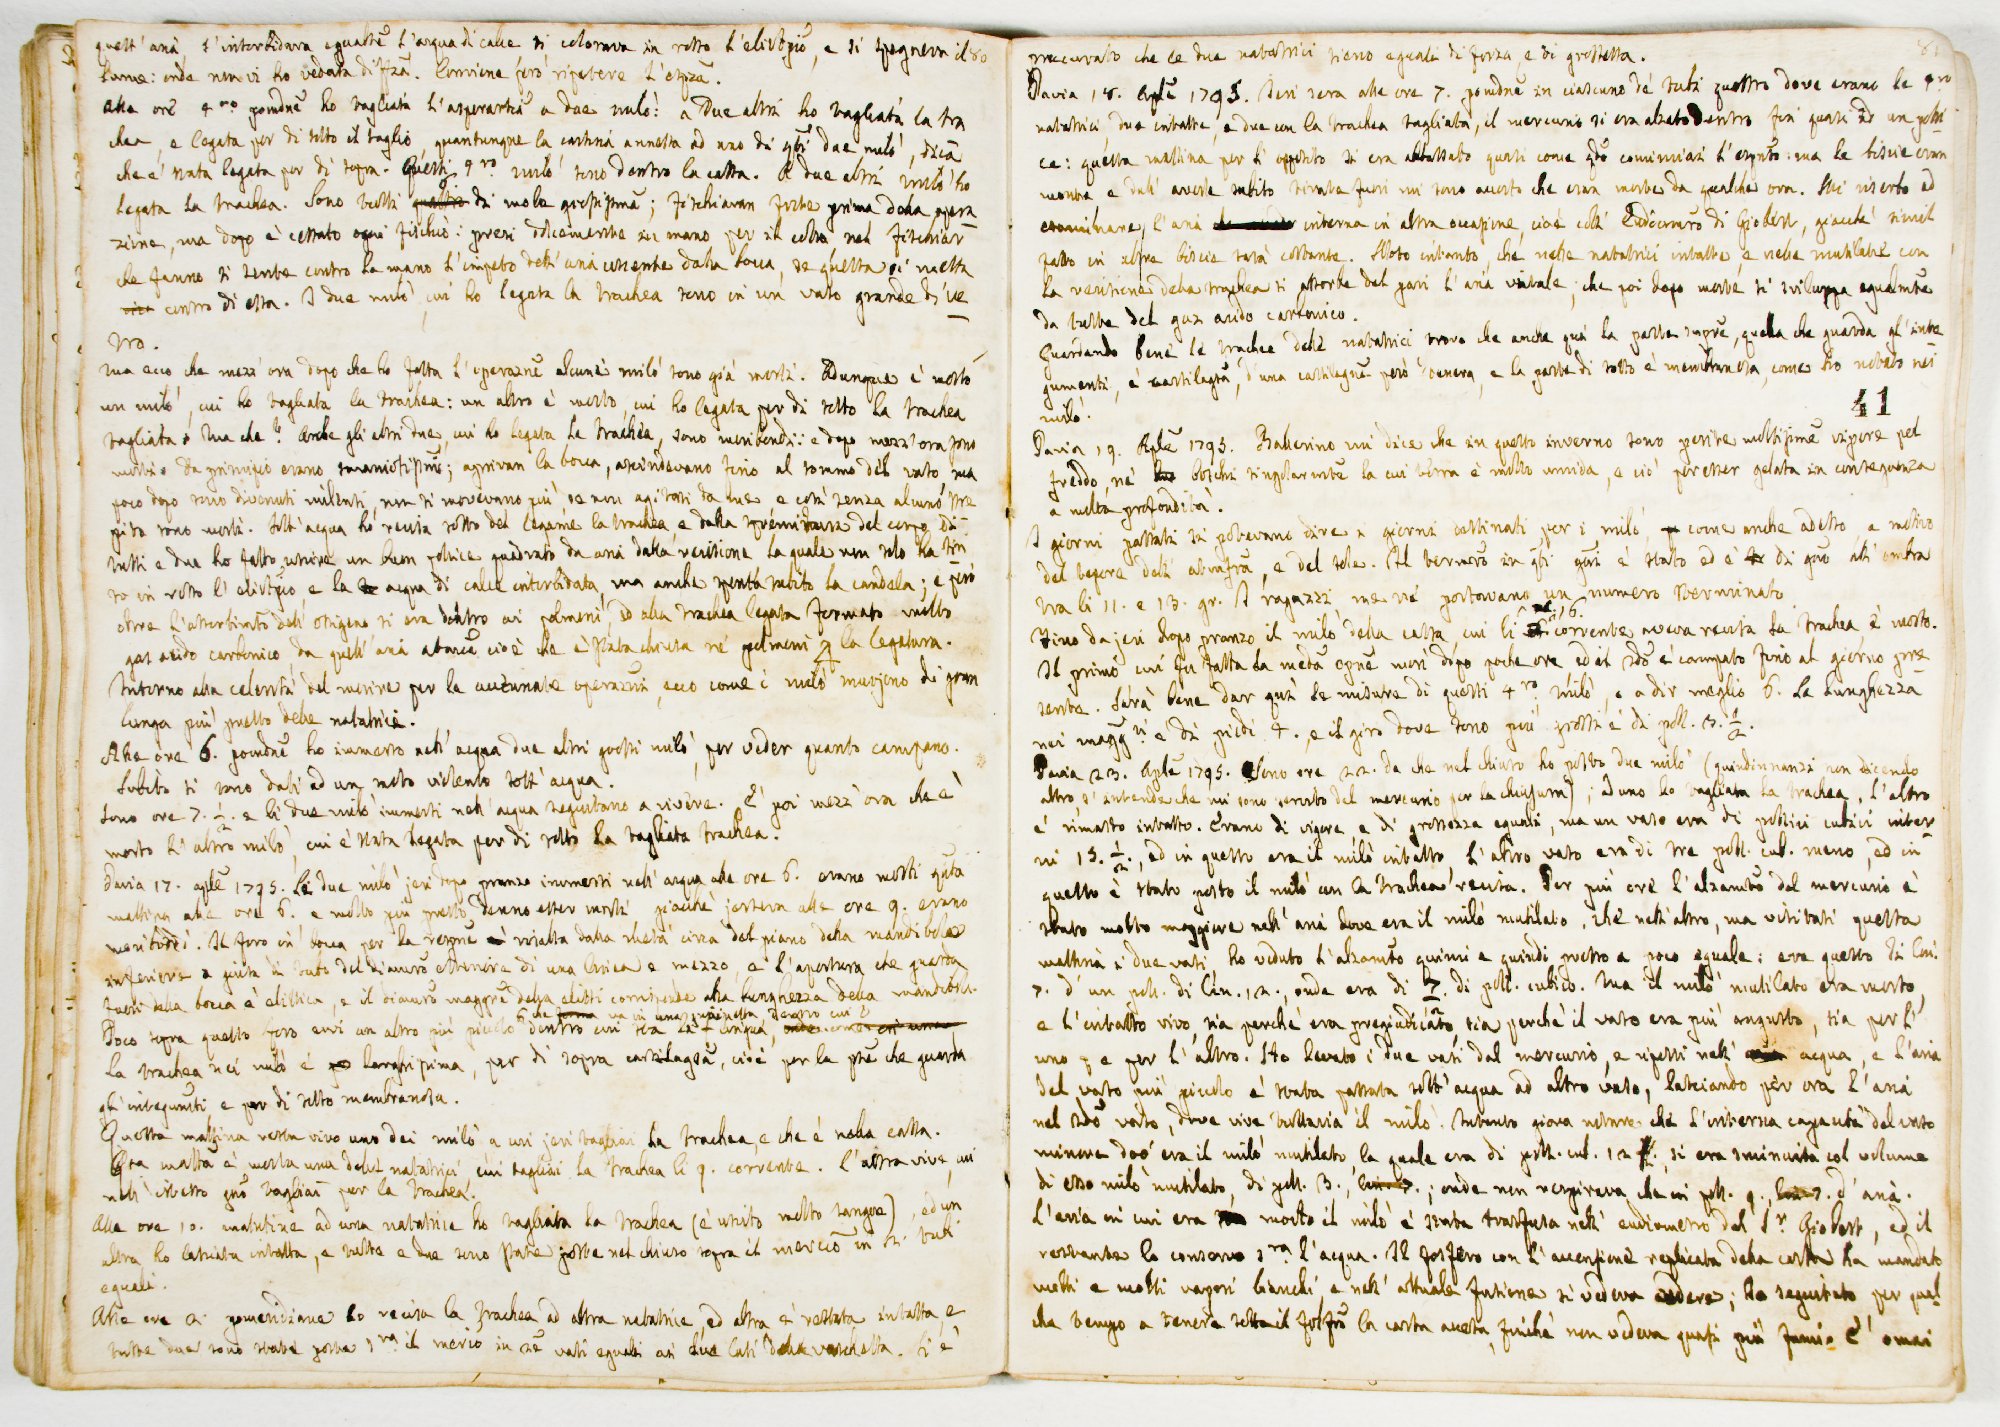 quest'aria, s'intorbidava egualm̃ l'acqua di calce si colorava in rosso l'elitropio, e si spegneva il 80
lume: onde non vi ho veduta diffz̃a. Conviene però ripetere l'espz̃a.
Alle ore 4.ro pomdñe ho tagliata l'asperart̃ia a due milò: a Due altri ho tagliata la tra
chea, e legata per di sotto il taglio, quantunque la cartina annessa ad uno di q̃ti due milò, dica
che è stata legata per di sopra. Questi 4.ro milò sono dentro la cassa. A due altri milò ho
legata la trachea. Sono tutti di mole grossissima; fischiavan forte prima della opera
zione, ma dopo è cessato ogni fischio: presi dolcemente in mano per il collo nel fischiar
che fanno si sente contro la mano l'impeto dell'aria uscente dalla bocca, se questa si metta
contro di essa. I due milò, cui ho legata la trachea sono in un vaso grande di ve
tro.
Ma ecco che mezz'ora dopo che ho fatta l'operazñe alcuni milò sono già morti. Adunque è morto
un milò, cui ho tagliata la trachea: un altro è morto, cui ho legata per di sotto la trachea
tagliata. Ma che? Anche gli altri due, cui ho legata la trachea, sono moribondi: e dopo mezz'ora sono
morti. Da principio erano smaniosissimi; aprivan la bocca, ascendevano fino al sommo del vaso, ma
poco dopo sono divenuti silenti, non si movevano più se non agitati da me e così senza alcuno stre
pito sono morti. Sott'acqua ho recisa sotto del legame la trachea e dalla spremitura del corpo di
tutti e due ho fatto uscire un buon pollice quadrato di aria dalla recisione la quale non solo ha tin
to in rosso l'elitropio e la acqua di calce intorbidata, ma anche spenta subito la candela; e però
oltre l'assorbimto dell'ossigeno si era dentro ai polmoni, ed alla trachea legata formato molto
gas acido carbonico, da quell'aria cioè che è stata chiusa ne' polmoni la legatura.
Intorno alla celerità del morire per le accennate operazni, ecco come i milò muojono di gran
lunga più presto delle natatrici.
Alle ore 6. pomdñe ho immerso nell'acqua due altri grossi milò, per veder quanto campano.
Subito si sono dati ad un moto violento sott'acqua.
Sono ore 7. 1/2. e li due milò immersi nell'acqua seguitano a vivere. È poi mezz'ora che è
morto l'altro milò, cui è stata legata per di sotto la tagliata trachea.
Pavia 17. aplẽ 1795. Li due milò jeri dopo pranzo immersi nell'acqua alle ore 6. erano morti q̃sta
mattina alle ore 6. e molto più presto denno esser morti, giacchè jersera alle ore 9. erano
moribondi. Il foro in bocca per la respñe risalta dalla metà circa del piano della mandibola
inferiore a guisa di tubo del diam̃ro esteriore di una linea e mezzo, e l'apertura che guarda
fuori della bocca è elittica, e il diam̃ro maggre della elissi corrisponde alla lunghezza della mandibola.
Poco sopra questo foro evvi un altro più piccolo dentro cui sta la lingua,
La trachea nei milò è larghissima, per di sopra cartilaginea, cioè per la pte che guarda
gl'integumti e per di sotto membranosa.
Questa mattina resta vivo uno dei milò a cui jeri tagliai la trachea, e che è nella cassa.
Q̃sta matt̃a è morta una delle natatrici cui tagliai la trachea li 9. corrente. L'altra vive, cui
nell'istesso gno tagliai per la trachea.
Alle ore 10. mattutine ad una natatrice ho tagliata la trachea (è uscito molto sangue), ed un
altra ho lasciata intatta, e tutte e due sono state poste nel chiuso sopra il mercio in 2. tubi
eguali.
Alle ore 2. pomeridiane ho recisa la trachea ad altra natatrice, ed altra è restata intatta, e
tutte due sono state poste s.ra il mercio in vasi eguali ai due lati della vaschetta. Si è
proccurato che le due natatrici sieno eguali di forza, e di grossezza.
Pavia 18. Aplẽ 1795. Jeri sera alle ore 7. pomdñe in ciascuno de' tubi quattro dove erano le 4.ro
natatrici due intatte, e due con la trachea tagliata, il mercurio si era alzato dentro fin quasi ad un polli
ce: questa mattina per l'opposto si era abbassato quasi come q̃do cominciai l'espm̃to: ma le biscie eran
morte e dall'averle subito tirate fuori mi sono accorto che eran morte da qualche ora. Mi riserbo ad
esaminare l'aria interna in altra occasione, cioè coll'Eudiometro di Giobert, giacchè simil
fatto in altre biscie sarà costante. Noto intanto, che nelle natatrici intatte, e nelle mutilate con
la recisione della trachea si assorbe del pari l'aria vitale, che poi dopo morte si sviluppa egualmte
da tutte del gaz acido carbonico.
Guardando bene le trachee delle natatrici trovo che anche qui la parte supre, quella che guarda gl'inte
gumenti, è cartilaginea, d'una cartilagine però tenera, e la parte di sotto è membranosa, come ho notato nei
milò.
41
Pavia 19. Aplẽ 1795. Ballerino mi dice che in questo inverno sono perite moltissime vipere pel
freddo, ne' boschi singolarmte la cui terra è molto umida, e ciò per esser gelata in conseguenza
a molta profondità.
I giorni passati si potevano dire i giorni destinati per i milò, come anche adesso, a motivo
del tepore dell'atmsfra, e del sole. Il termomro in q̃ti gni è stato ed è di gno all'ombra
tra li 11. e 13. gr. I ragazzi me ne portavano un numero sterminato.
Fino da jeri dopo pranzo il milò della cassa cui li 16. corrente aveva recisa la trachea, è morto.
Il primo cui fu fatta la medã opñe morì dopo poche ore ed il 2do è campato fino al giorno pre
sente. Sarà bene dar qui le misure di questi 4.ro milò, e a dir meglio 6. La lunghezza
nei magg.ri è di piedi 4., e il giro dove sono più grossi è di poll. 3. 1/2.
Pavia 23. Aplẽ 1795. Sono ore 22. da che nel chiuso ho posto due milò (quindinnanzi non dicendo
altro s'intende che mi sono servito del mercurio per la chiusura), ad uno ho tagliata la trachea, l'altro
è rimasto intatto. Erano di vigore, e di grossezza eguali, ma un vaso era di pollici cubici inter
ni 15. 1/2., ed in questo era il milò intatto, l'altro vaso era di tre poll. cub. meno, ed in
questo è stato posto il milò con la trachea recisa. Per più ore l'alzamto del mercurio è
stato molto maggiore nell'aria dove era il milò mutilato, che nell'altro, ma visitati questa
mattina i due vasi, ho veduto l'alzamto quinci e quindi presso a poco eguale: era questo di lin.
7. d'un poll. di lin. 12., onde era di 7. di poll. cubico. Ma il milò mutilato era morto,
e l'intatto vivo, sia perchè era pregiudicato, sia perchè il vaso era più angusto, sia per l'
uno, e per l'altro. Ho levato i due vasi dal mercurio, e riposti nell' acqua, e l'aria
del vaso più piccolo è stata passata sott'acqua ad altro vaso, lasciando per ora l'aria
nel 2do vaso, dove vive tuttavia il milò. Intanto giova notare che l'interna capacità del vaso
minore dove era il milò mutilato, la quale era di poll. cub. 12 1/2., si era sminuita col volume
di esso milò mutilato, di poll. 3.; onde non respirava che in poll. 9., d'aria.
L'aria in cui era morto il milò è stata trasfusa nell'eudiometro del S.r Giobert, ed il
restante lo conservo s.ra l'acqua. Il fosforo con l'accensione replicata della carta ha mandato
molti e molti vapori bianchi, e nell'attuale fusione si vedeva ardere; ho seguitato per qual
che tempo a tenere sotto il fosfro la carta accesa, finchè non vedeva quasi più fumi. È omai